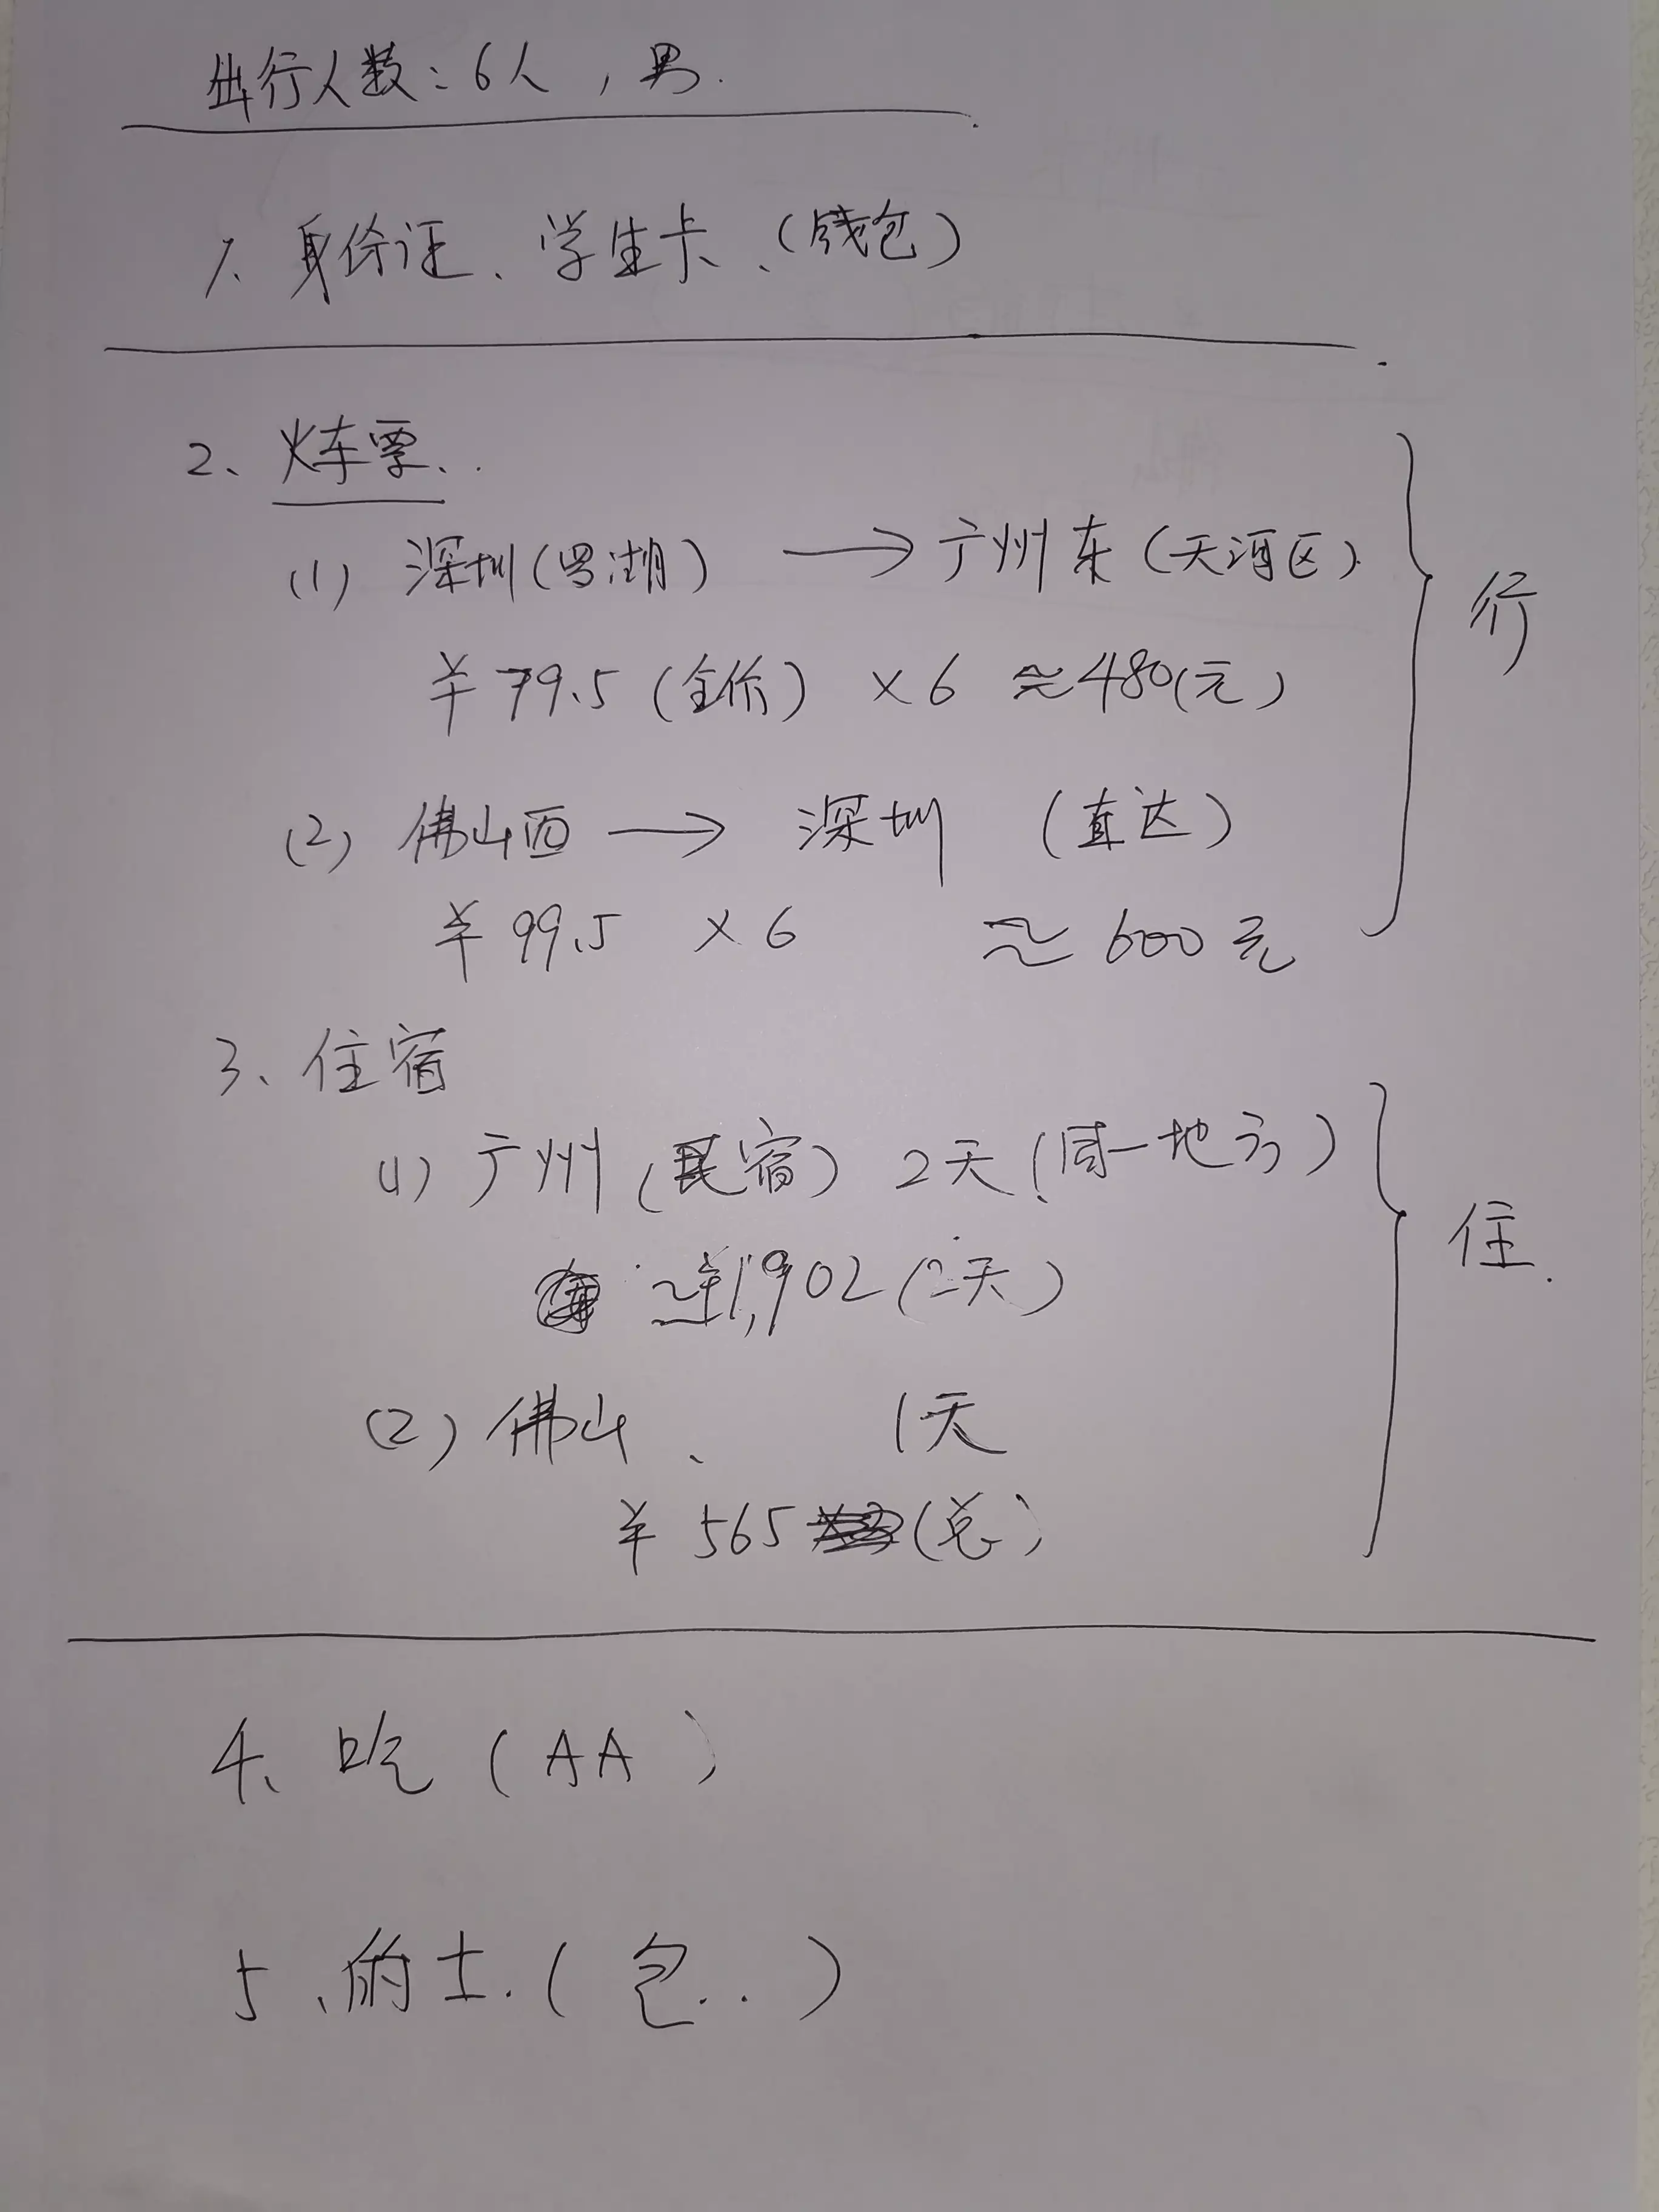 出行人数：6人，男.
1、身份证、学生卡、（钱包）
2、火车票、.
(1) 深圳（罗湖） → 广州东（天河区）.
¥79.5（全价）×6 ≈480（元）
行
(2) 佛山西 → 深圳 （直达）
¥99.5 ×6 ≈ 600元
3、住宿
(1) 广州（民宿）2天（同一地方）
~¥1,902（2天）
住.
(2) 佛山、 1天
¥565（总）
4、吃（AA）
5、的士.（包..）